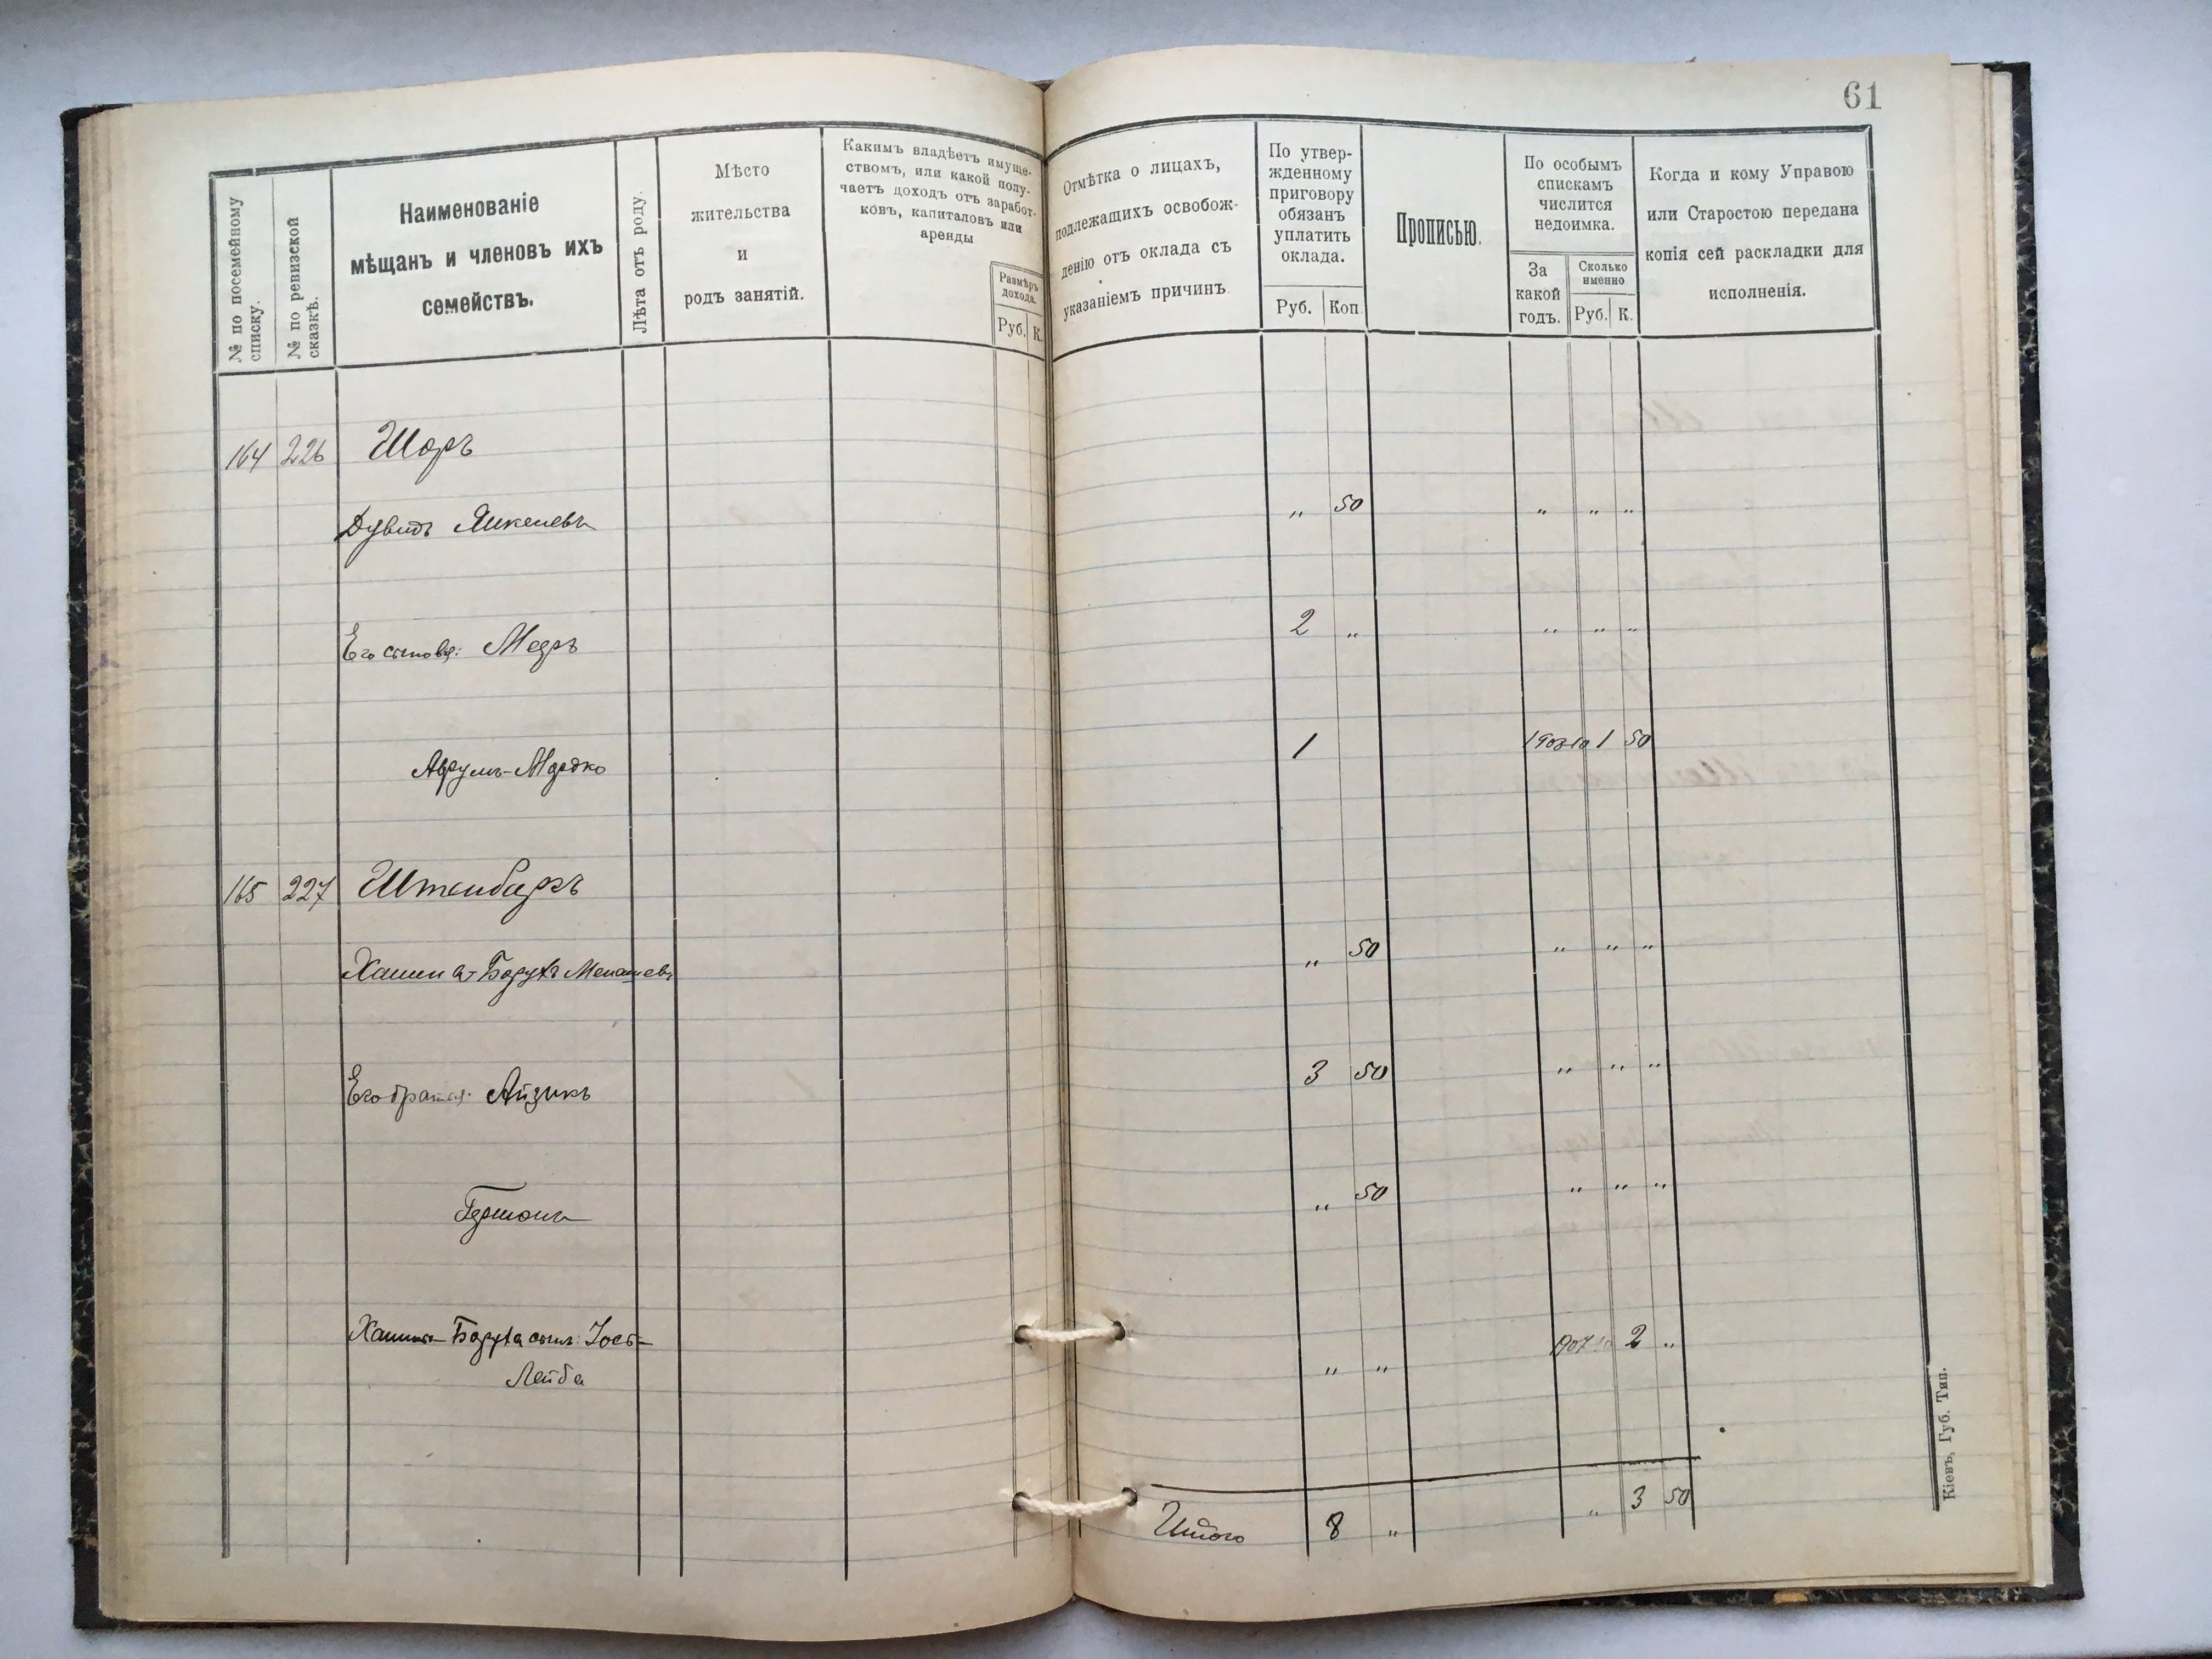 61
№ по посемейному
списку.
№ по ревизской
сказкѣ.
Наименованіе
мѣщанъ и членовъ ихъ
семействъ.
Лѣта отъ роду.
Мѣсто
жительства
и
родъ занятій.
Какимъ владѣетъ имуще-
ствомъ, или какой полу-
чаетъ доходъ отъ заработ-
ковъ, капиталовъ или
аренды
Размѣръ
дохода.
Руб. К.
Отмѣтка о лицахъ,
подлежащихъ освобож-
денію отъ оклада съ
указаніемъ причинъ
По утвер-
жденному
приговору
обязанъ
уплатить
оклада.
Руб. Коп.
Прописью.
По особымъ
спискамъ
числится
недоимка.
За
какой
годъ.
Сколько
именно
Руб. К.
Когда и кому Управою
или Старостою передана
копія сей раскладки для
исполненія.
164 226 Шоръ
Дувидъ Янкелевъ „ 50 „ „ „
Его сыновья: Мееръ 2 „ „ „ „
Аврумъ-Мордко 1 1908-10 1 50
165 227 Штенбаргъ
Хаимъ-Борухъ Менашевъ „ 50 „ „ „
Его братья: Айзикъ 3 50 „ „ „
Гершонъ „ 50 „ „ „
Хаимъ-Боруха сынъ: Іось-
Лейба „ „ 1907 10 2 „
Итого 8 „ „ 3 50
Кіевъ, Губ. Тип.